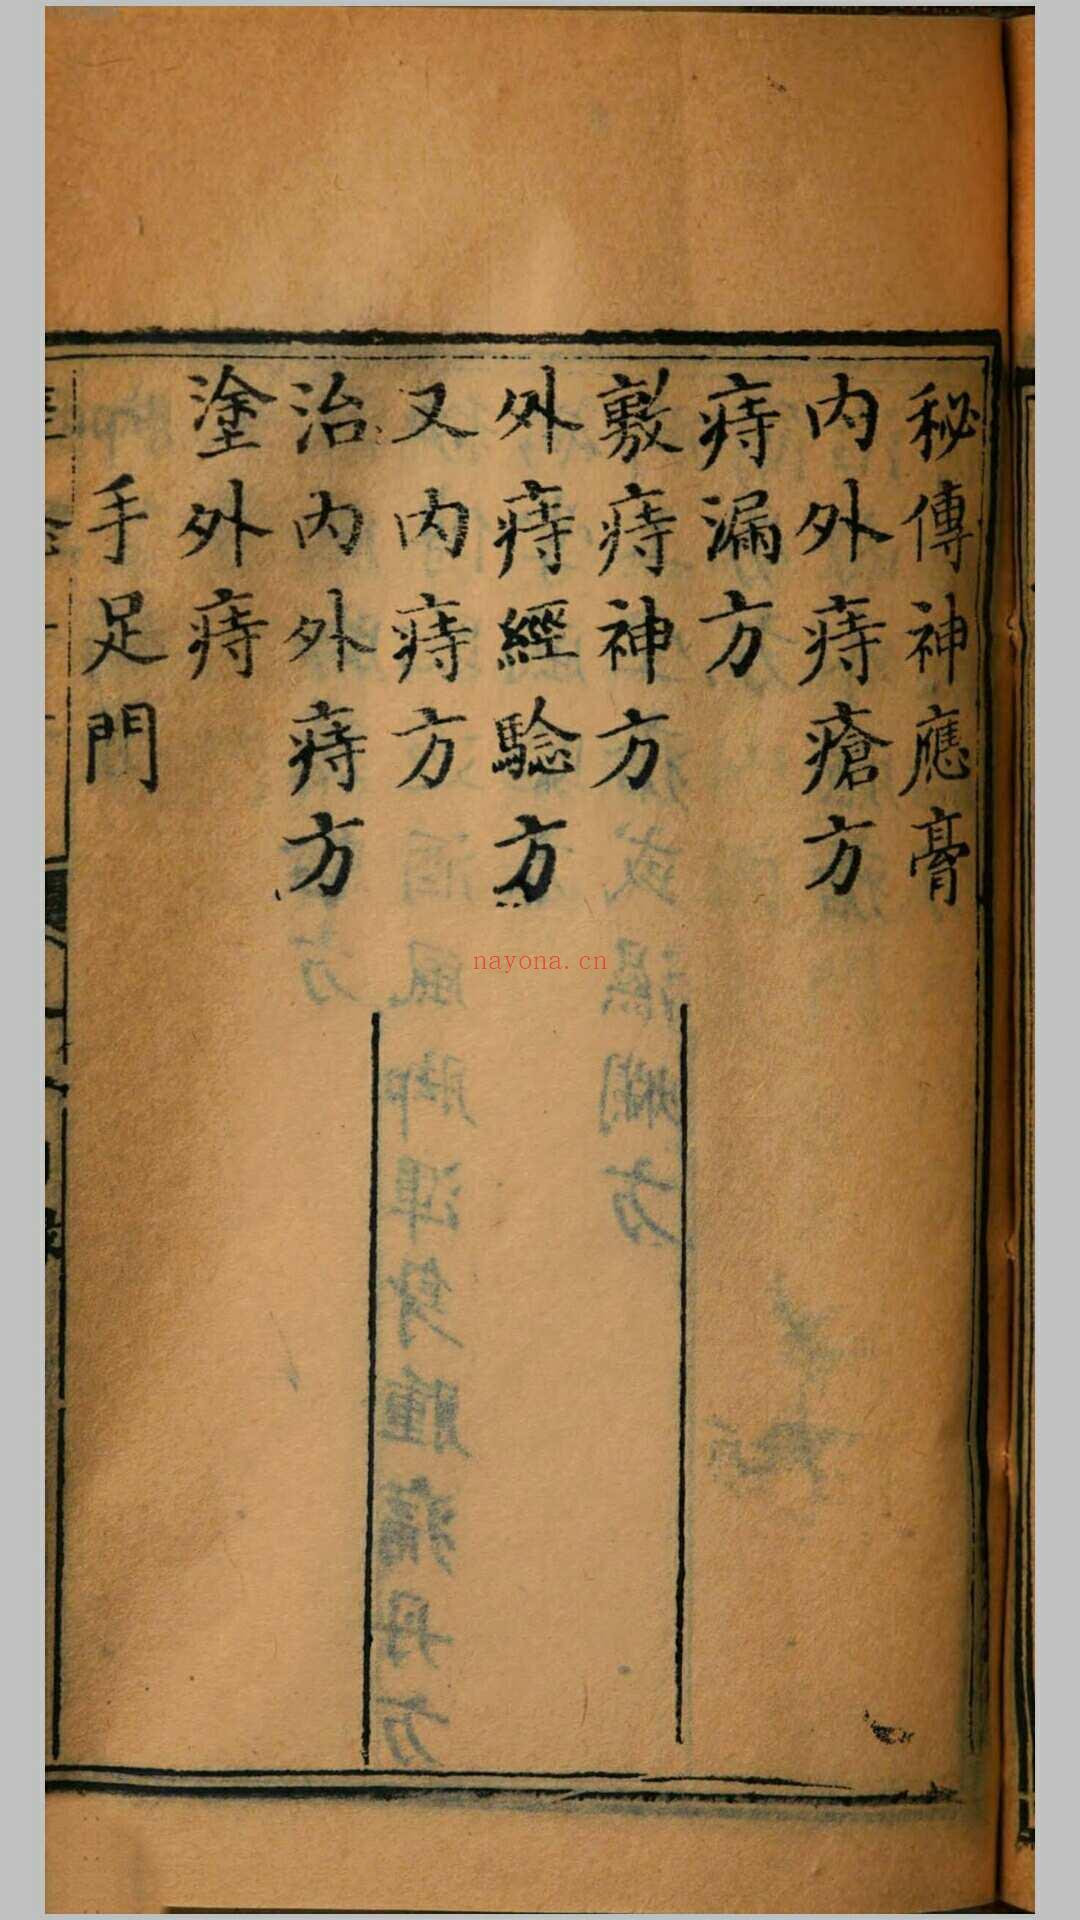 秘傳神應膏
內外痔瘡方
痔漏方
敷痔神方
外痔經驗方
又內痔方
治內外痔方
塗外痔
手足門
nayona.cn